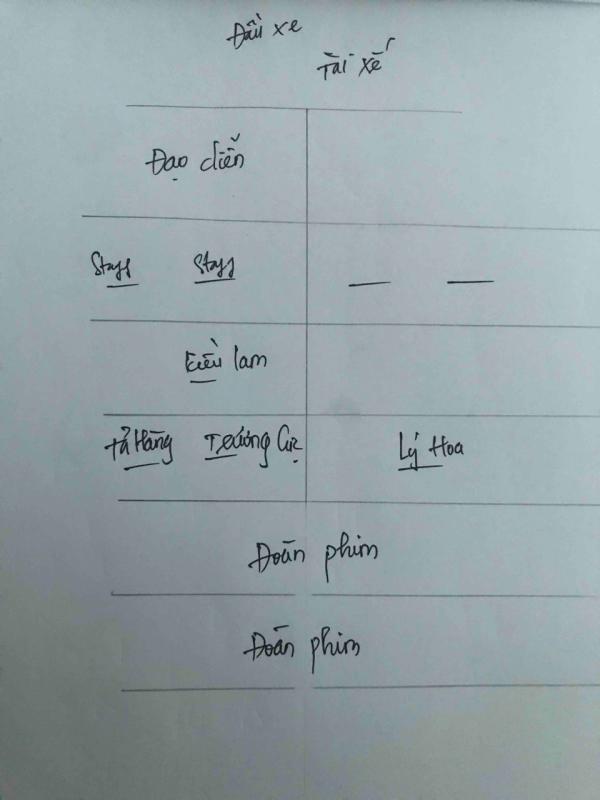 Đầu xe
Tài xế
Đạo diễn
Staff Staff
Kiều Lam
Tả Hàng Trương Cự Lý Hoa
Đoàn phim
Đoàn phim